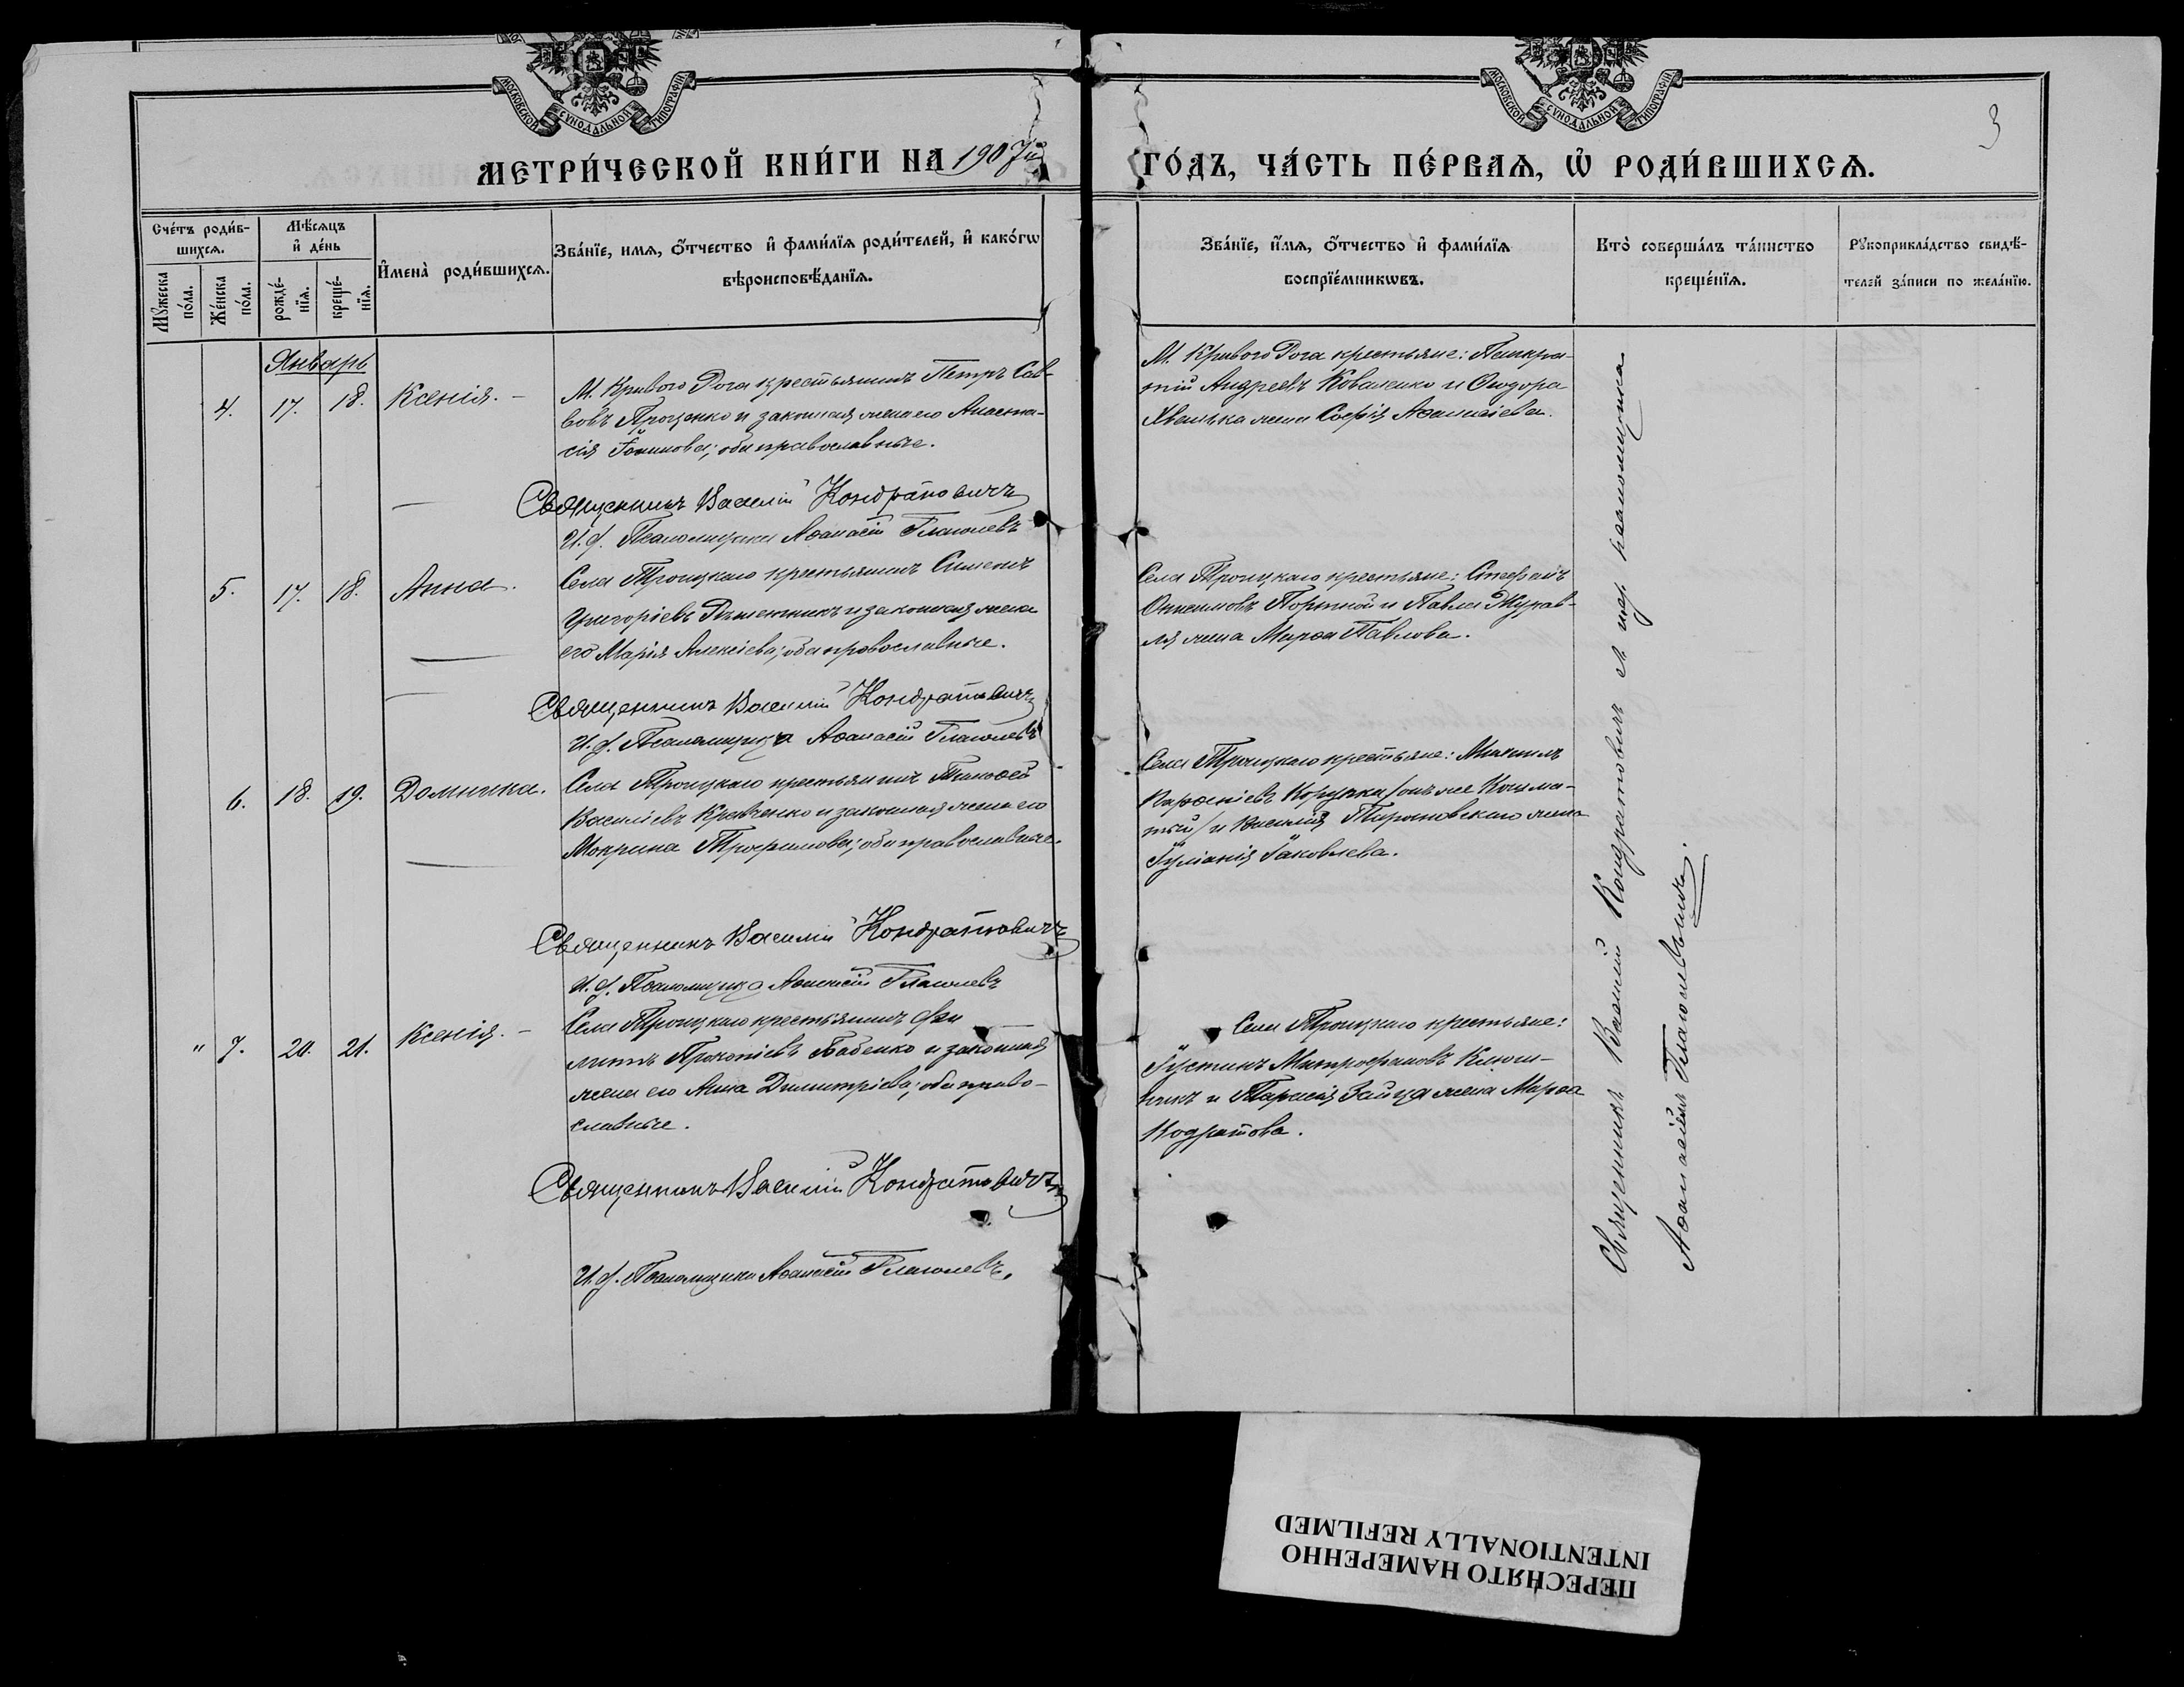 МОСКОВСКОЙ СѴНОДАЛЬНОЙ ТИПОГРАФІИ
МОСКОВСКОЙ СѴНОДАЛЬНОЙ ТИПОГРАФІИ
3
МЕТРИ́ЧЕСКОЙ КНИ́ГИ НА 1907й
ГО́ДЪ, ЧА́СТЬ ПЕ́РВАѦ, Ѽ РОДИ́ВШИХСѦ.
Сче́тъ роди́в-
шихсѧ.
Мꙋжеска
по́ла.
Же́нска
по́ла.
Мѣ́сяцъ
и҆ де́нь
рожде́-
нїѧ.
креще́-
нїѧ.
И҆мена̀ роди́вшихсѧ.
Зва́нїе, имѧ, ѻ҆́тчество и҆ фами́лїѧ роди́телей, и҆ како́гѡ
вѣроисповѣ́данїѧ.
Зва́нїе, и҆́мѧ, ѻ҆́тчество и҆ фами́лїѧ
воспрїе́мникѡвъ.
Кто̀ соверша́лъ та́инство
креще́нїѧ.
Рꙋкоприкла́дство свидѣ́-
телей за́писи по жела́нїю.
Январь
4. 17. 18. Ксенія. -
М. Кривого Рога крестьянинъ Петръ Сав-
вовъ Проценко и законная жена его Анаста-
сія; оба православные.
Священникъ Василій Кондратовичъ
И. д. Псаломщика Аѳанасій Глаголевъ
М. Кривого Рога крестьяне: Панкра-
тій Андреевъ Коваленко и Ѳеодора
жена Софія Аѳанасіева.
5. 17. 18. Анна.
Села Троицкаго крестьянинъ Симеонъ
Григоріевъ и законная жена
его Марія Алексіева; оба православные.
Священникъ Василій Кондратовичъ
И. д. Псаломщика Аѳанасій Глаголевъ
Села Троицкаго крестьяне: Стефанъ
Онисимовъ Портной и Павла Журав-
ля жена Марѳа Павлова.
6. 18. 19. Домника.
Села Троицкаго крестьянинъ Тимоѳей
Василіевъ Кравченко и законная жена его
Мокрина Трофимова; оба православные.
Священникъ Василій Кондратовичъ
И. д. Псаломщика Аѳанасій Глаголевъ
Села Троицкаго крестьяне: Михаилъ
Парѳеніевъ /онъ же Кошма-
тый/ и Василія жена
Іуліанія Іаковлева.
" 7. 20. 21. Ксенія. -
Села Троицкаго крестьянинъ Фи
липпъ Прокопіевъ Бабенко и законная
жена его Анна Димитріева; оба право-
славные.
Священникъ Василій Кондратовичъ
И. д. Псаломщика Аѳанасій Глаголевъ.
Села Троицкаго крестьяне:
Іустинъ Митрофановъ Клюш-
никъ и Тарасія Зайца жена Марѳа
Кодратова.
Священникъ Василій Кондратовичъ псаломщика
Аѳанасіемъ Глаголевымъ.
ПЕРЕСНЯТО НАМЕРЕННО
INTENTIONALLY REFILMED